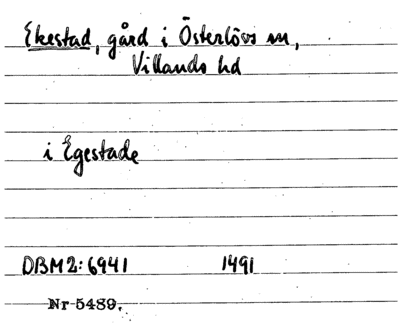 Ekestad, gård i Österlövs sn,
Villands hd
i Egestade
DBM2:6941 1491
Nr 5489.